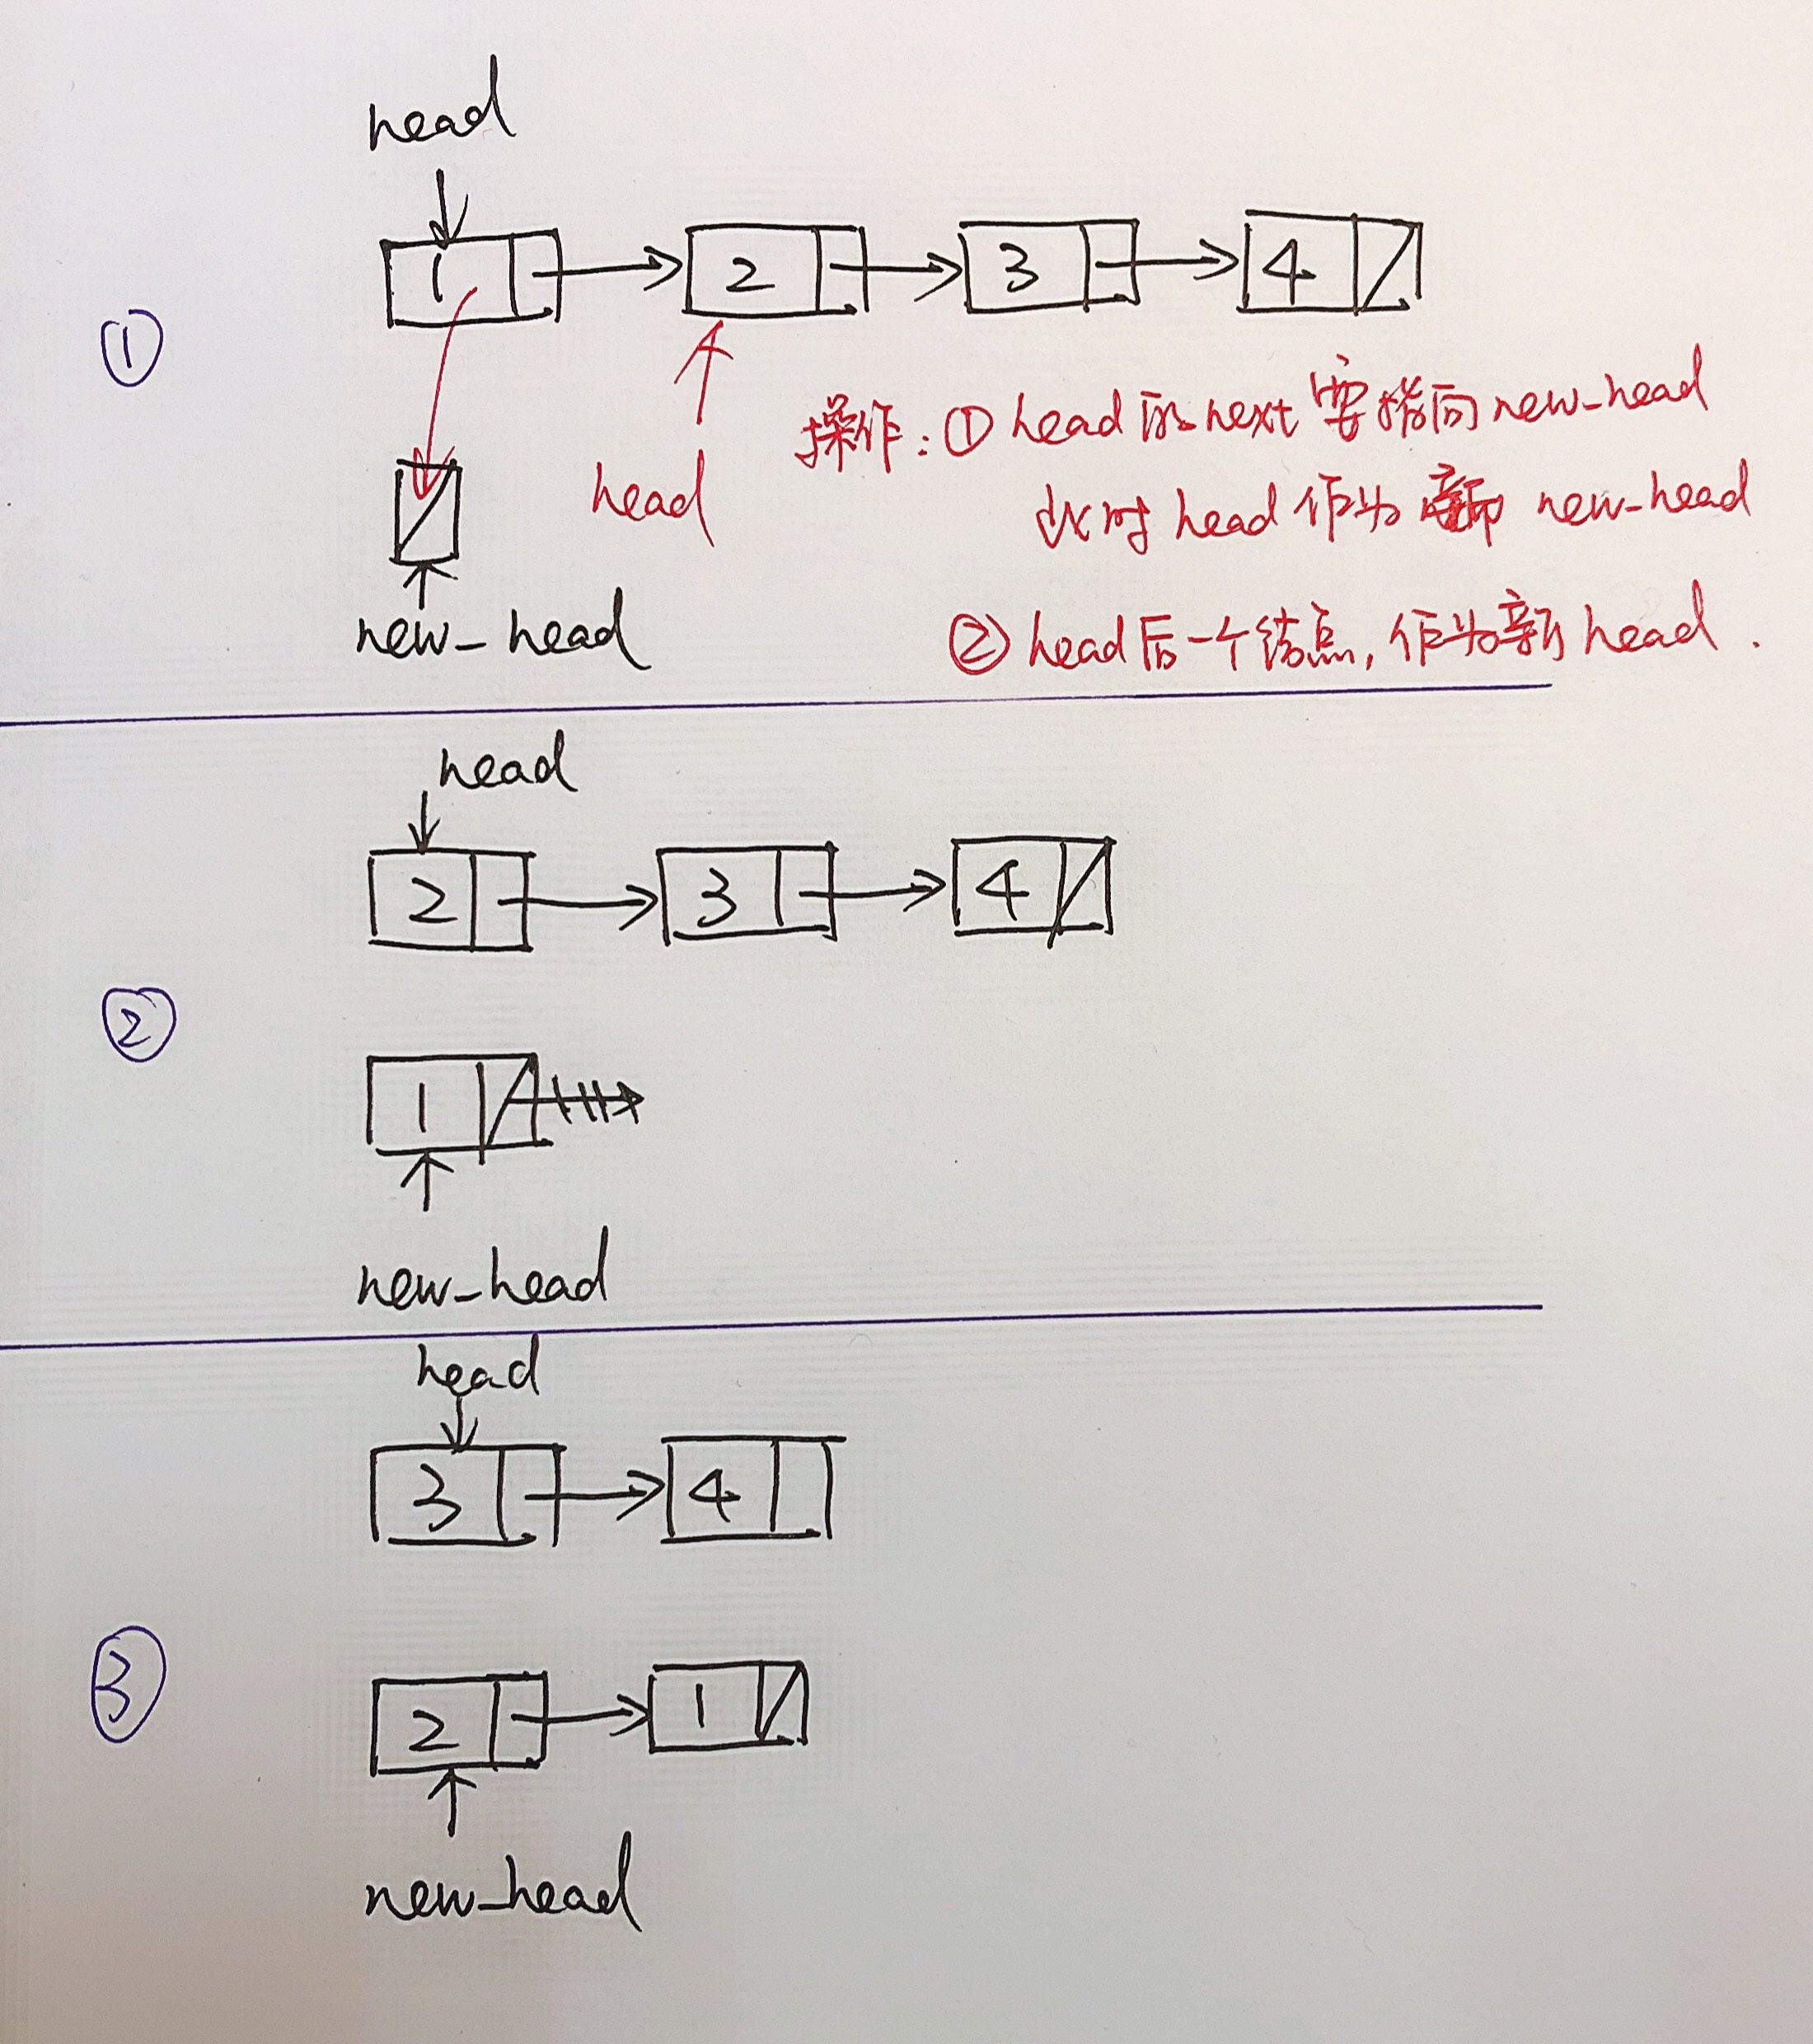 head
1 2 3 4
①
head
操作：① head的next要指向new-head
此时head作为 new-head
new-head
② head后一个结点，作为新head.
head
2 3 4
②
1
new-head
head
3 4
③
2 1
new-head